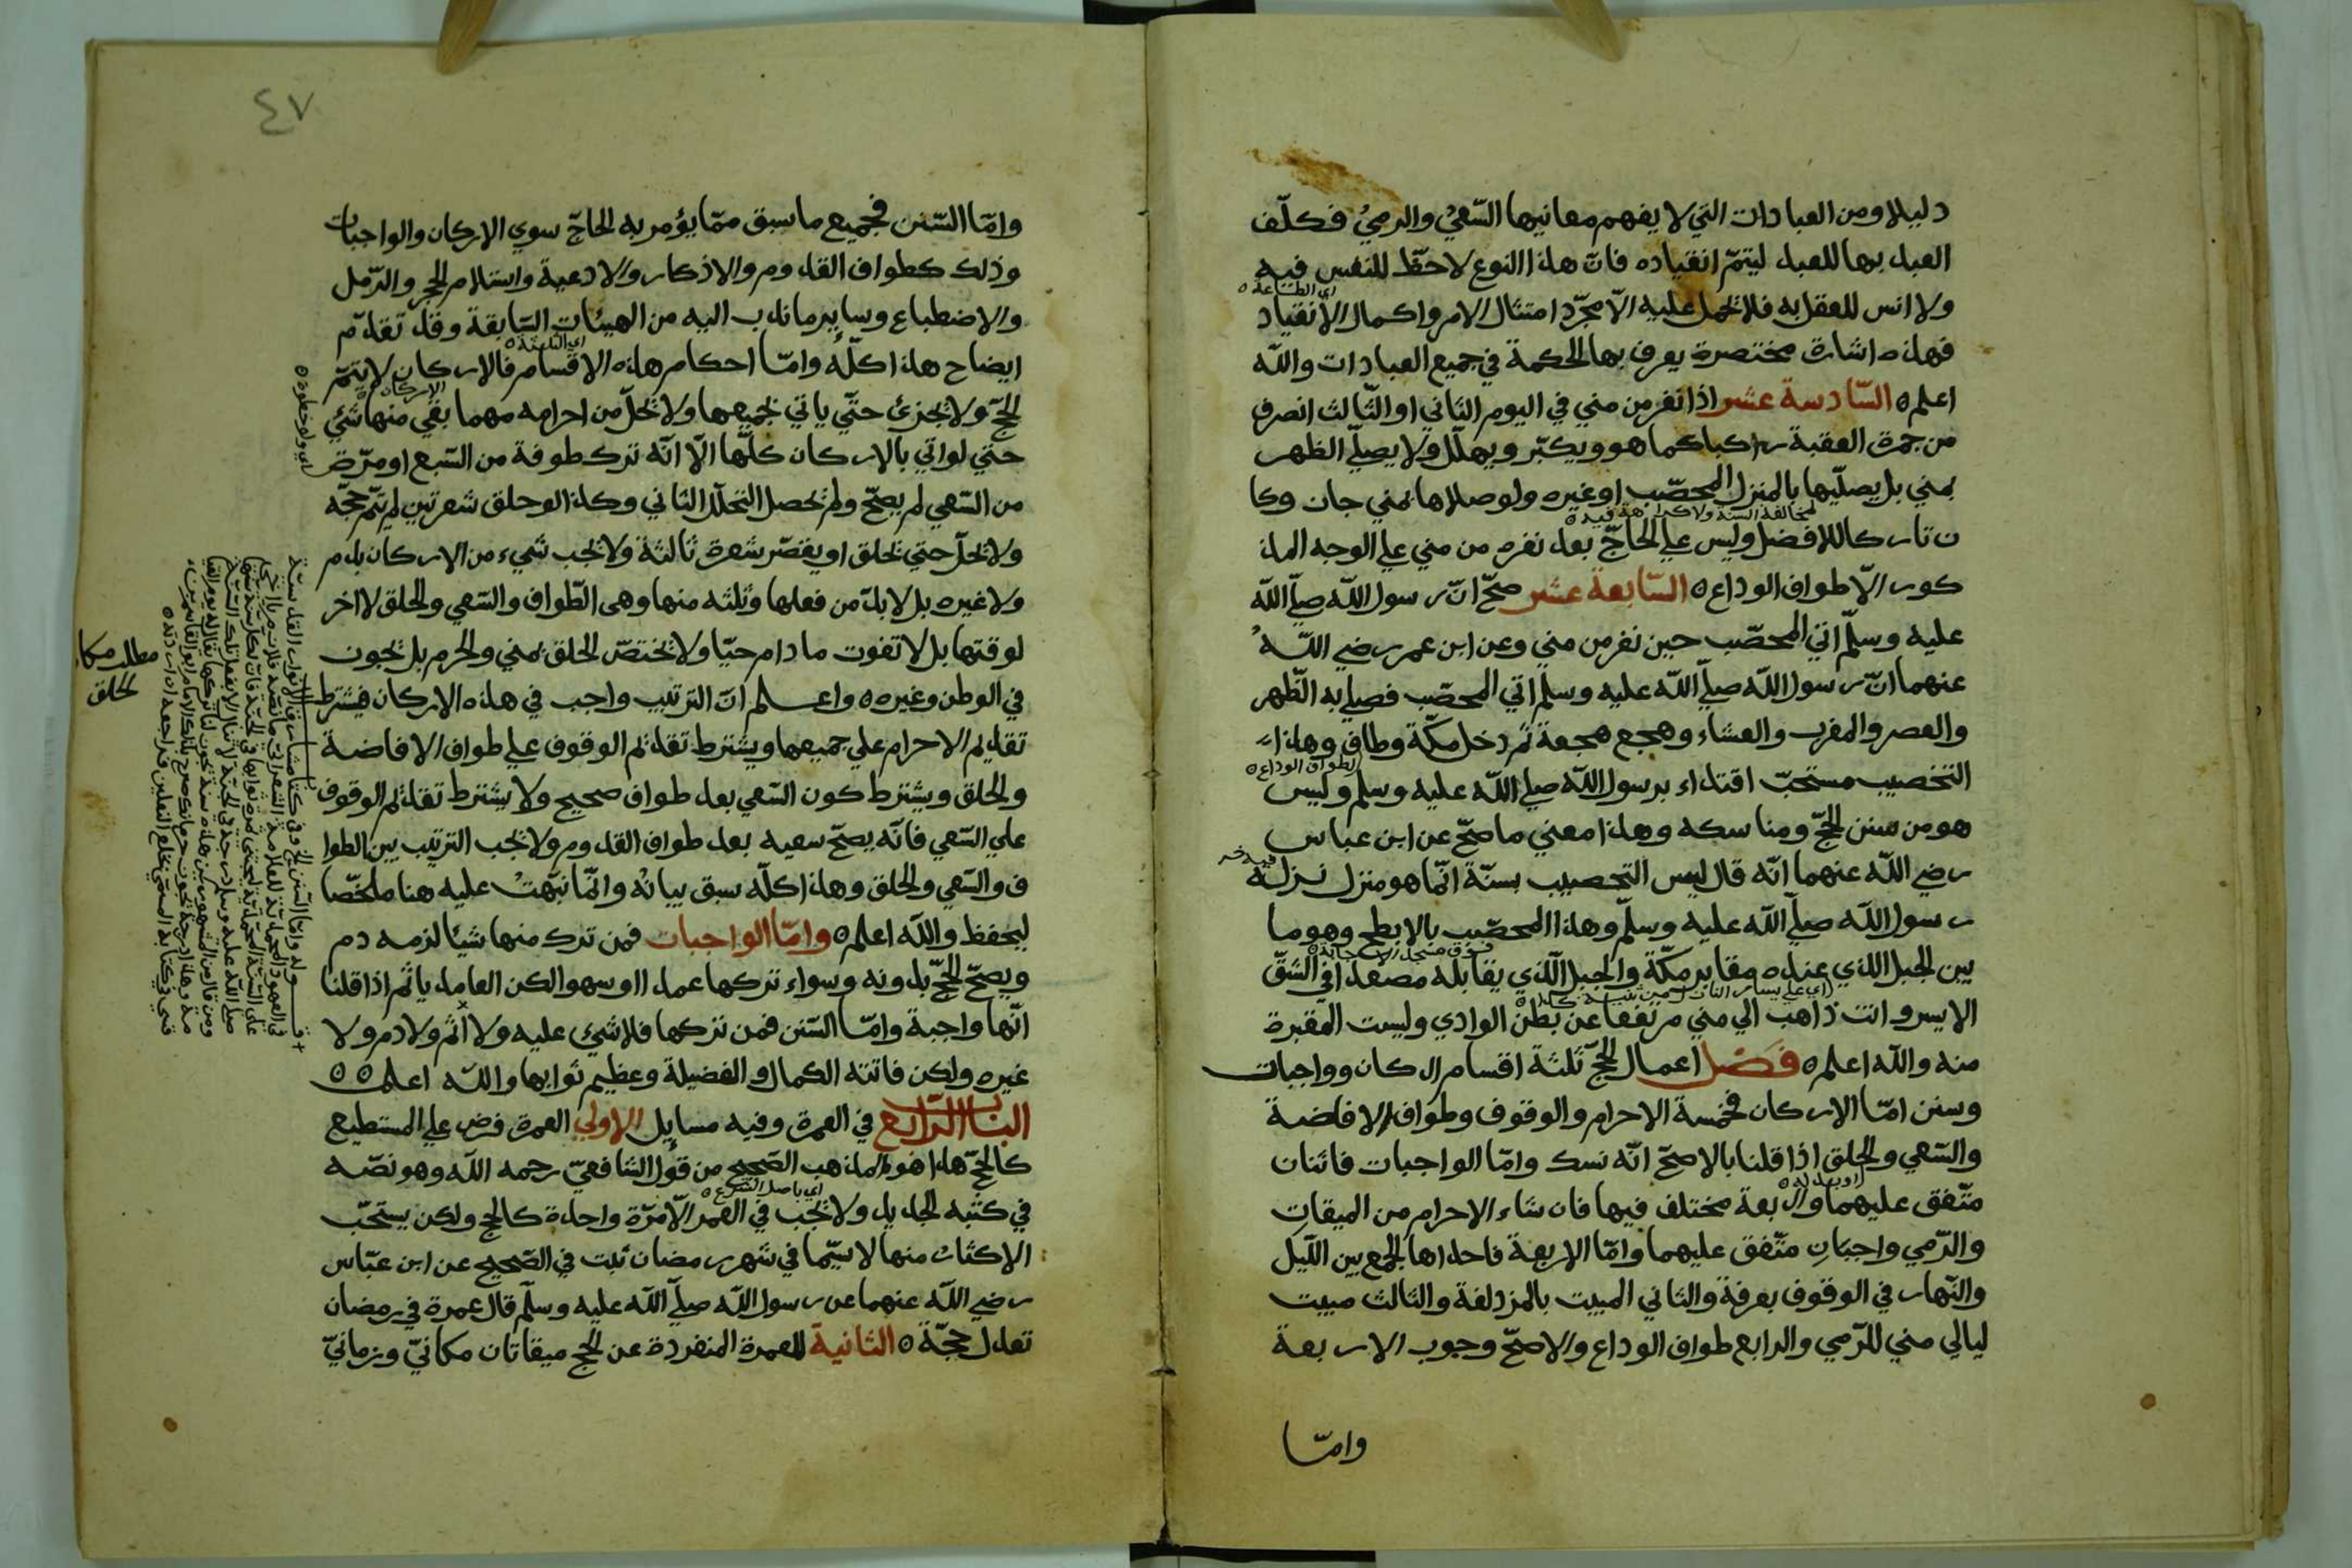 دليلا ومن العبادات التي لا يفهم معانيها السّعيُ والرميُ فكلّف
العبد بها للعبد ليتمّ انقياده فانّ هذا النوع لا حظّ للنفس فيه
ولا انس للعقل به فلا يحمل عليه الّا مجرّد امتثال الامر واكمال الانقياد
اي الطاعة ه
فهذه اشارة مختصرة يعرف بها الحكمة في جميع العبادات والله
اعلم ه السّادسة عشر اذا نفر من مني في اليوم الثاني او الثّالث انصرف
من جمرة العقبة راكبا كما هو ويكبّر ويهلّل ولا يصلّي الظهر
بمني بل يصلّيها بالمنزل المحصّب او غيره ولو صلاها بمني جان وكا
لمخالفة السنة ولا كراهة فيه ه
ن تاركا للافضل وليس علي الحاجّ بعد نفره من مني علي الوجه المذ
كور الّا طواف الوداع ه السّابعة عشر صحّ انّ رسول الله صلّي الله
عليه وسلّم اتي المحصّب حين نفر من مني وعن ابن عمر رضي اللّهُ
عنهما انّ رسول الله صلّي الله عليه وسلم اتي المحصّب فصلي به الظّهر
والعصر والمغرب والعشاء وهجع هجعة ثم دخل مكّة وطاف وهذا
لطواف الوداع ه
التخصيب مستحبّ اقتداء برسول الله صلي الله عليه وسلم وليس
هو من سنن الحجّ ومناسكه وهذا معني ما صحّ عن ابن عباس
رضي الله عنهما انّه قال ليس التحصيب بسنّة انّما هو منزل نزله
رسول الله صلّي الله عليه وسلّم وهذا المحصّب بالابطح وهو ما
بين الجبل الذي عنده مقابر مكّة والجبل الّذي يقابله مصعدا في الشقّ
الايسر وانت ذاهب الي مني مرتفعا عن بطن الوادي وليست المقبرة
منه والله اعلم ه فصل اعمال الحجّ ثلثة اقسام اركان وواجبات
وسنن امّا الاركان فخمسة الاحرام والوقوف وطواف الافاضة
والسّعي والحلق اذا قلنا بالاصحّ انّه نسك وامّا الواجبات فاثنان
متّفق عليهما واربعة مختلف فيها فان شاء الاحرام من الميقاتِ
والرّمي واجبَانِ متّفق عليهما وامّا الاربعة فاحداها الجمع بين اللّيل
والنّهار في الوقوف بعرفة والثاني المبيت بالمزدلفة والثالث مبيت
ليالي مني للرّمي والرابع طواف الوداع والاصحّ وجوب الاربعة
وامّا
٤٧
وامّا السّنن فجميع ما سبق ممّا يؤمر به الحاجّ سوي الاركان والواجبات
وذلك كطواف القدوم والاذكار والادعية واستلام الحجر والرّمل
والاضطباع وساير ما ندب اليه من الهيئات السّابقة وقد تقدّم
ايضاح هذا كلّه وامّا احكام هذه الاقسام فالاركان لا يتمّ
اي الثلثة ه
الحجّ ولا يجزئ حتّي ياتي بجميعها ولا يحلّ من احرامه مهما بقي منها شئ
الاركان
حتي لو اتي بالاركان كلّها الّا انّه ترك طوفة من السّبع او مرّة
اي ولو خطوة ه
من السّعي لم يصحّ ولم يحصل التحلّل الثاني وكذا لو حلق شعرتين لم يتمّ حجّه
ولا يحلّ حتي يحلق او يقصّر شعرة ثالثة ولا يجب شيء من الاركان بدم
ولا غيره بل لا بدّ من فعلها وثلثه منها وهي الطّواف والسّعي والحلق لا اخر
لوقتها بل لا تفوت ما دام حيّا ولا يختصّ الحلق بمني والحرم بل يجوز
مطلب مكان
الحلق
في الوطن وغيره ه واعلم انّ الترتيب واجب في هذه الاركان فيشترط
تقديم الاحرام علي جميعها ويشترط تقديم الوقوف علي طواف الافاضة
والحلق ويشترط كون السّعي بعد طواف صحيح ولا يشترط تقديم الوقوف
علي السّعي فانّه يصحّ سعيه بعد طواف القدوم ولا يجب الترتيب بين الطوا
ف والسّعي والحلق وهذا كلّه سبق بيانُه وانّما نبّهتُ عليه هنا ملخّصا
ليحفظ والله اعلم ه وامّا الواجبات فمن ترك منها شيئا لزمه دم
ويصحّ الحجّ بدونه وسواء تركها عمدا او سهوا لكن العامد ياثم اذا قلنا
انّها واجبة وامّا السّنن فمن تركها فلا شئ عليه ولا اثم ولا دم ولا
غيره ولكن فاتته الكمال والفضيلة وعظيم ثوابها واللّه اعلم ه ه
الباب الرّابع في العمرة وفيه مسايل الاولي العمرة فرض علي المستطيع
كالحجّ هذا هو المذهب الصّحيح من قول الشافعيّ رحمه الله وهو نصّه
في كتبه الجديد ولا يجب في العمر الّا مرّة واحدة كالحج ولكن يستحبّ
اي باصل الشرع ه
الاكثار منها لا سيّما في شهر رمضان ثبت في الصّحيح عن ابن عبّاس
رضي الله عنهما عن رسول الله صلّي الله عليه وسلّم قال عمرة في رمضان
تعدل حجّة ه الثانية للعمرة المنفردة عن الحج ميقاتان مكانيّ وزمانيّ